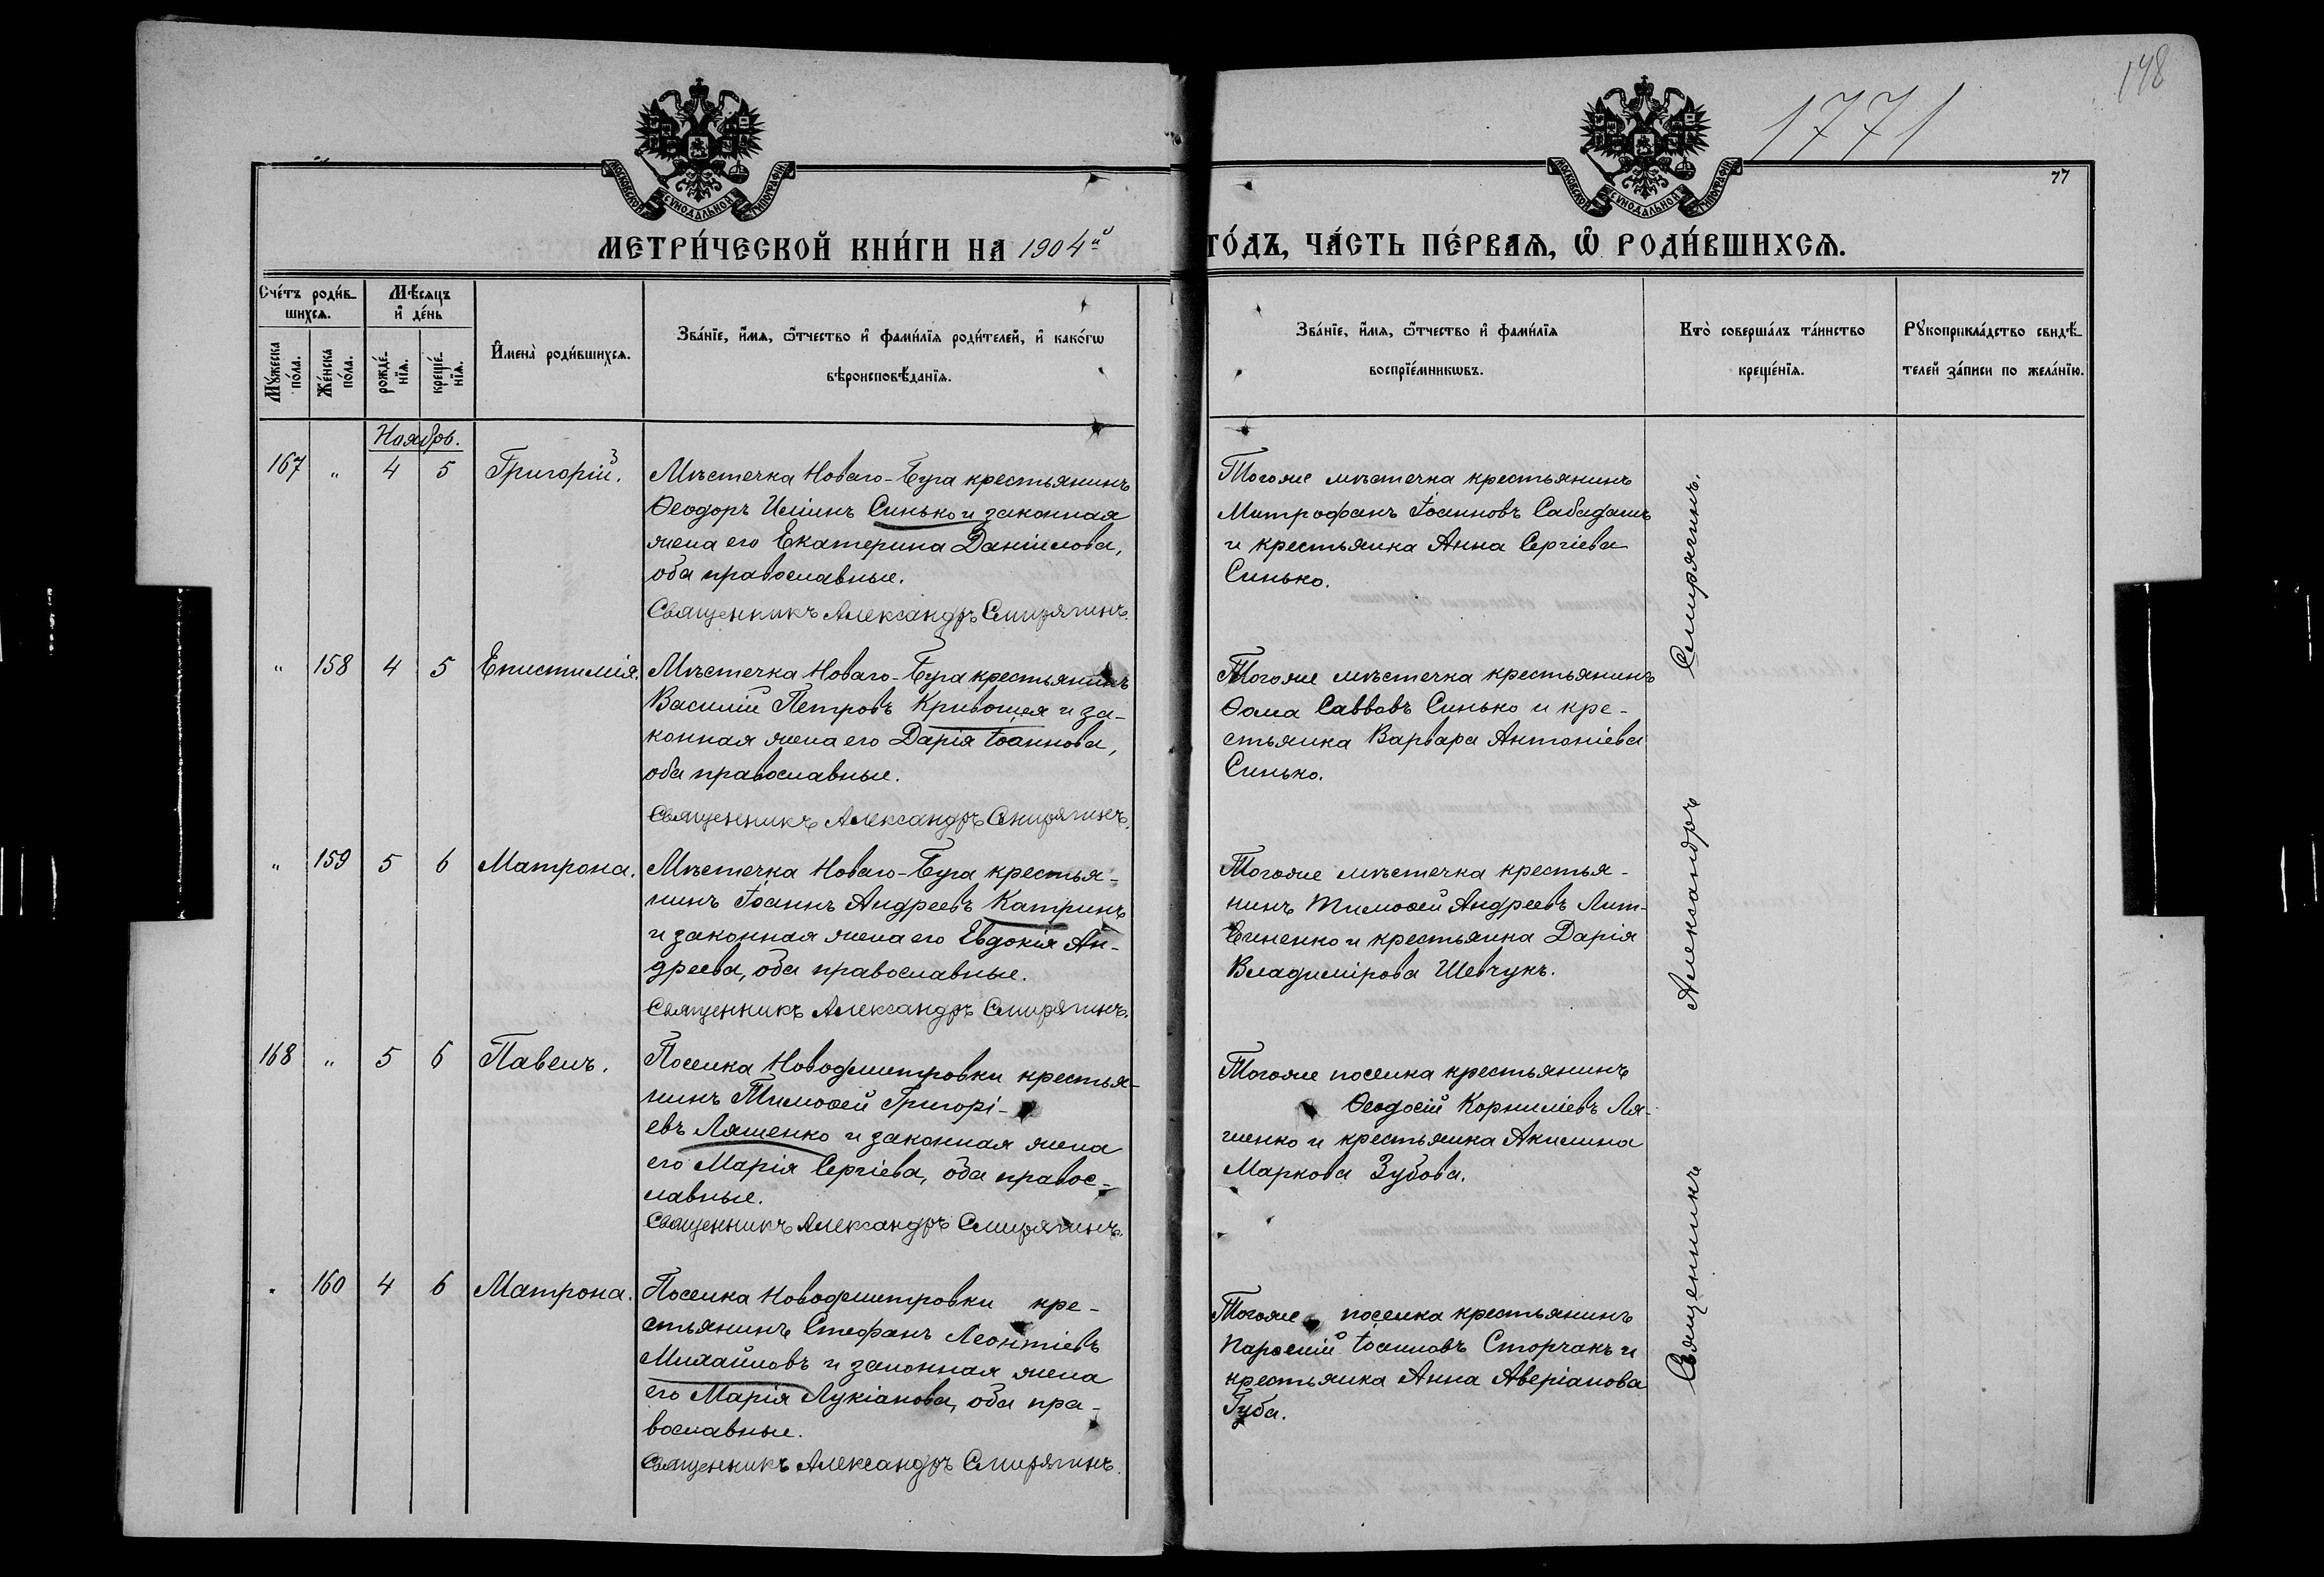 148
1771
МОСКОВСКОЙ СѴНОДАЛЬНОЙ ТИПОГРАФІИ
МОСКОВСКОЙ СѴНОДАЛЬНОЙ ТИПОГРАФІИ
77
МЕТРИ́ЧЕСКОЙ КНИ́ГИ НА 1904й
ГО́ДЪ, ЧА́СТЬ ПЕ́РВАѦ, Ѿ РОДИ́ВШИХСѦ.
Сче́тъ роди́в-
шихсѧ.
Мꙋ́жеска
по́ла.
Же́нска
по́ла.
Мѣ́сѧцъ
и҆ де́нь
рожде́-
нїѧ.
креще́-
нїѧ.
И҆мена̀ роди́вшихсѧ.
Зва́нїе, и҆́мѧ, ѻ҆́тчество и҆ фами́лїѧ роди́телей, и҆ како́гѡ
вѣроисповѣ́данїѧ.
Зва́нїе, и҆́мѧ, ѻ҆́тчество и҆ фами́лїѧ
воспрїе́мникѡвъ.
Кто̀ соверша́лъ та́инство
креще́нїѧ.
Рꙋкоприкла́дство свидѣ́-
телей за́писи по жела́нїю.
Ноябрь.
167 " 4 5 Григорій. 3
Мѣстечка Новаго-Буга крестьянинъ
Ѳеодоръ Иліинъ Синько и законная
жена его Екатерина Даніилова,
оба православные.
Священникъ Александръ Смирягинъ.
Тогоже мѣстечка крестьянинъ
Митрофанъ Іоанновъ Сабадашъ
и крестьянка Анна Сергіева
Синько.
" 158 4 5 Епистимія.
Мѣстечка Новаго-Буга крестьянинъ
Василій Петровъ Кривошея и за-
конная жена его Дарія Іоаннова,
оба православные.
Священникъ Александръ Смирягинъ.
Тогоже мѣстечка крестьянинъ
Ѳома Саввовъ Синько и кре-
стьянка Варвара Антоніева
Синько.
" 159 5 6 Матрона.
Мѣстечка Новаго-Буга крестья-
нинъ Іоаннъ Андреевъ Катринъ
и законная жена его Евдокія Ан-
дреева, оба православные.
Священникъ Александръ Смирягинъ.
Тогоже мѣстечка крестья-
нинъ Тимоѳей Андреевъ Лит-
виненко и крестьянка Дарія
Владимірова Шевчукъ.
168 " 5 6 Павелъ.
Поселка Новодмитровки крестья-
нинъ Тимоѳей Григорі-
евъ Ляшенко и законная жена
его Марія Сергіева, оба правос-
лавные.
Священникъ Александръ Смирягинъ.
Тогоже поселка крестьянинъ
Ѳеодосій Корниліевъ Ля-
шенко и крестьянка Акилина
Маркова Зубова.
" 160 4 6 Матрона.
Поселка Новодмитровки кре-
стьянинъ Стефанъ Леонтіевъ
Михайловъ и законная жена
его Марія Лукіанова, оба пра-
вославные.
Священникъ Александръ Смирягинъ.
Тогоже поселка крестьянинъ
Парѳеній Іоанновъ Сторчакъ и
крестьянка Анна Аверіанова
Губа.
Священникъ Александръ Смирягинъ.